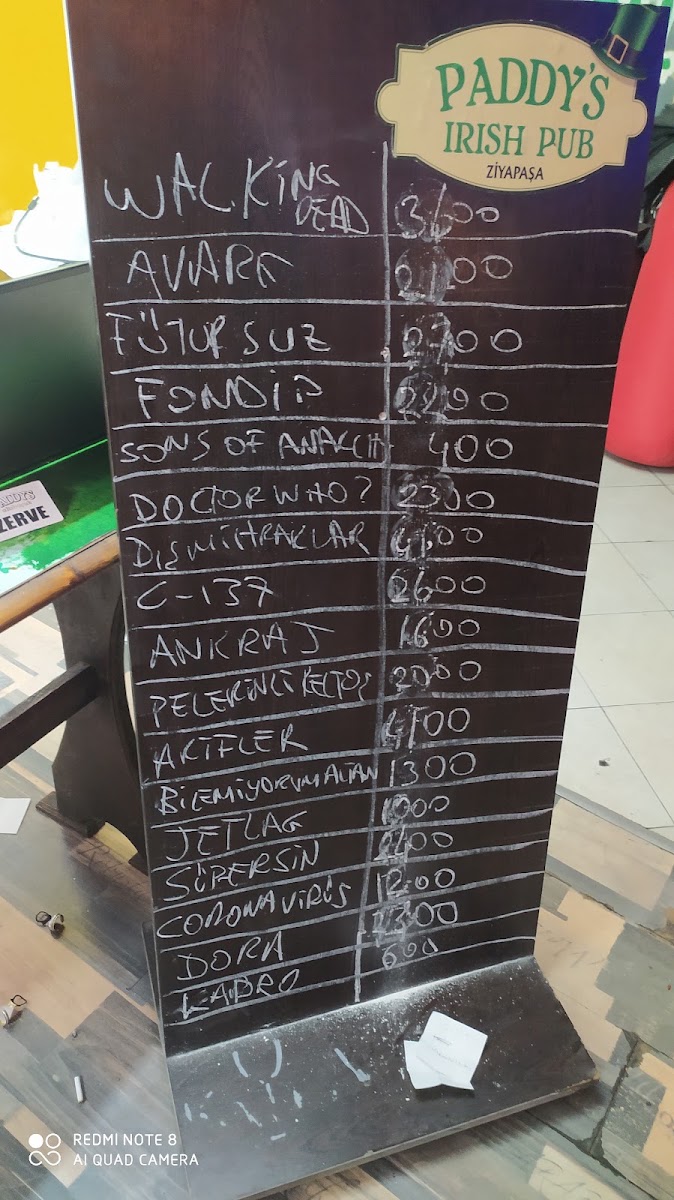 PADDY'S
IRISH PUB
ZİYAPAŞA
WALKİNG DEAD 3100
AVARE 2100
FÜTURSUZ 2700
FONDİP 2200
SONS OF ANARCH 400
DOCTOR WHO? 2300
DIŞ MİHRAKLAR
C-137 2600
ANKRAJ 1600
PELERİNLİ 2000
AKİFLER
BİLEMİYORUM ALTAN 1300
JETLAG 1000
SÜPERSİN 2400
CORONAVİRÜS 1200
DORA 2300
KADRO 600
PADDY'S
ZERVE
REDMI NOTE 8
AI QUAD CAMERA